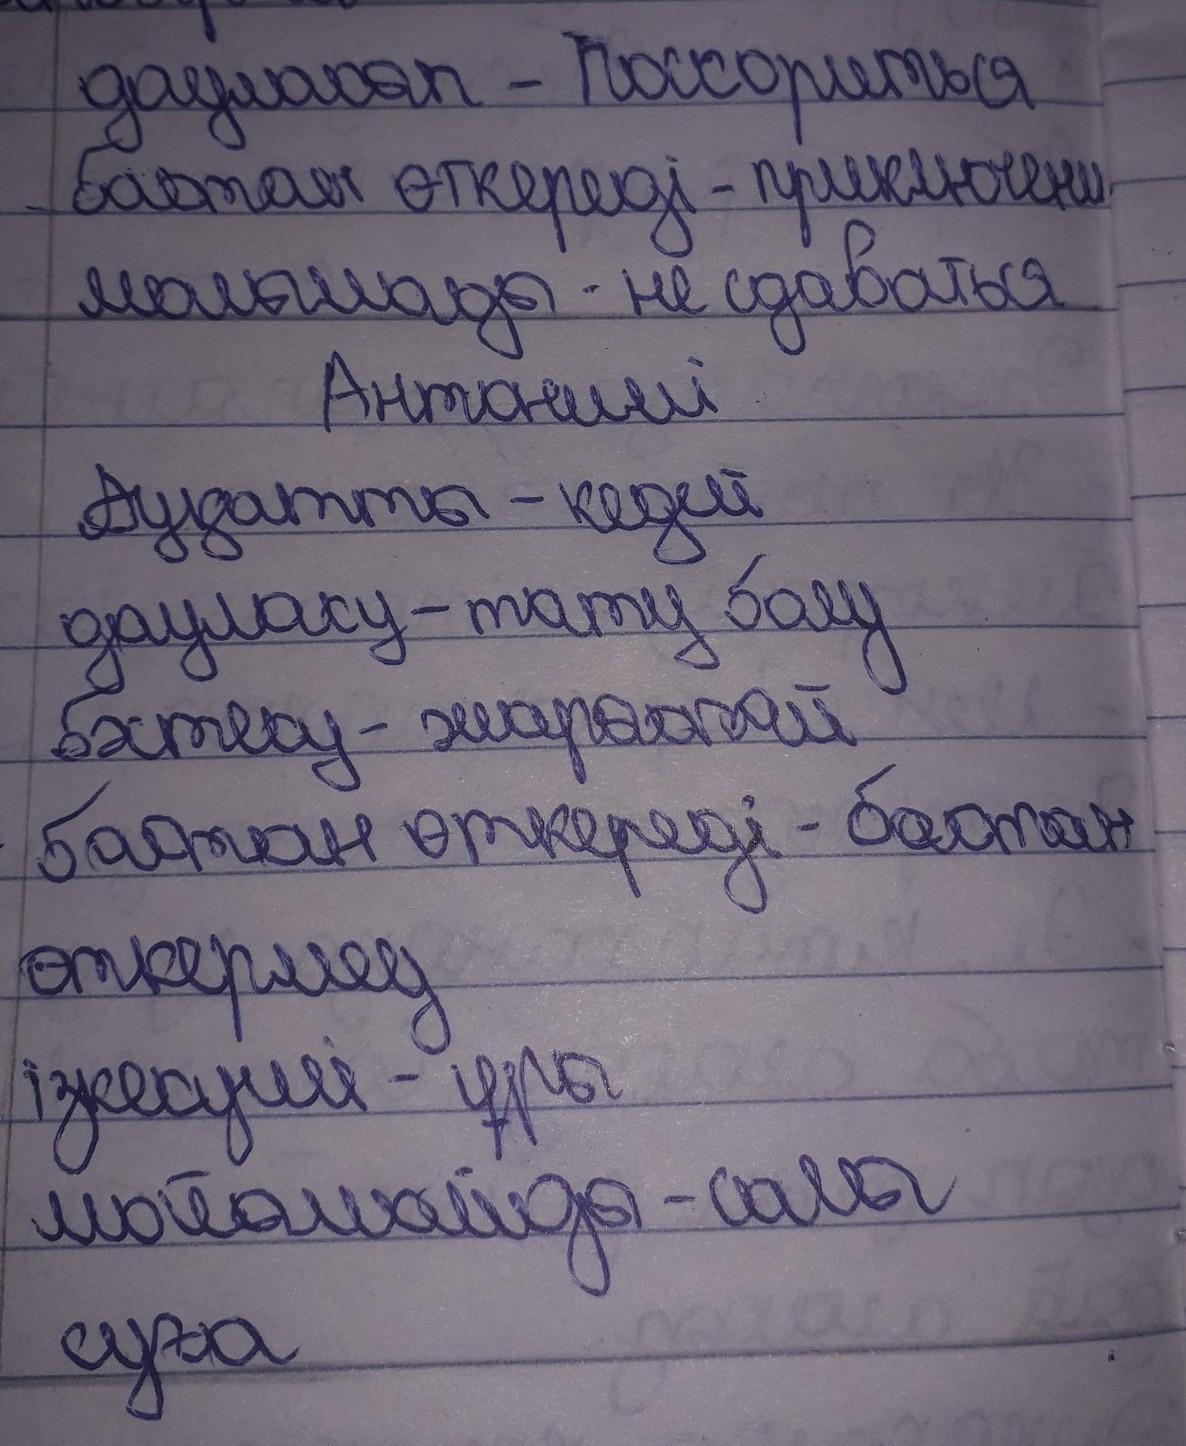 дауласып - Поссориться
бастан өткереді - приключени
мойымады - не сдаваться
Антонимі
Ауқатты - кедей
дауласу - тату болу
бәстесу - жараспай
бастан өткереді - бастан
өткермеу
ізкесуші - ұры
мойымайды - салы
суға